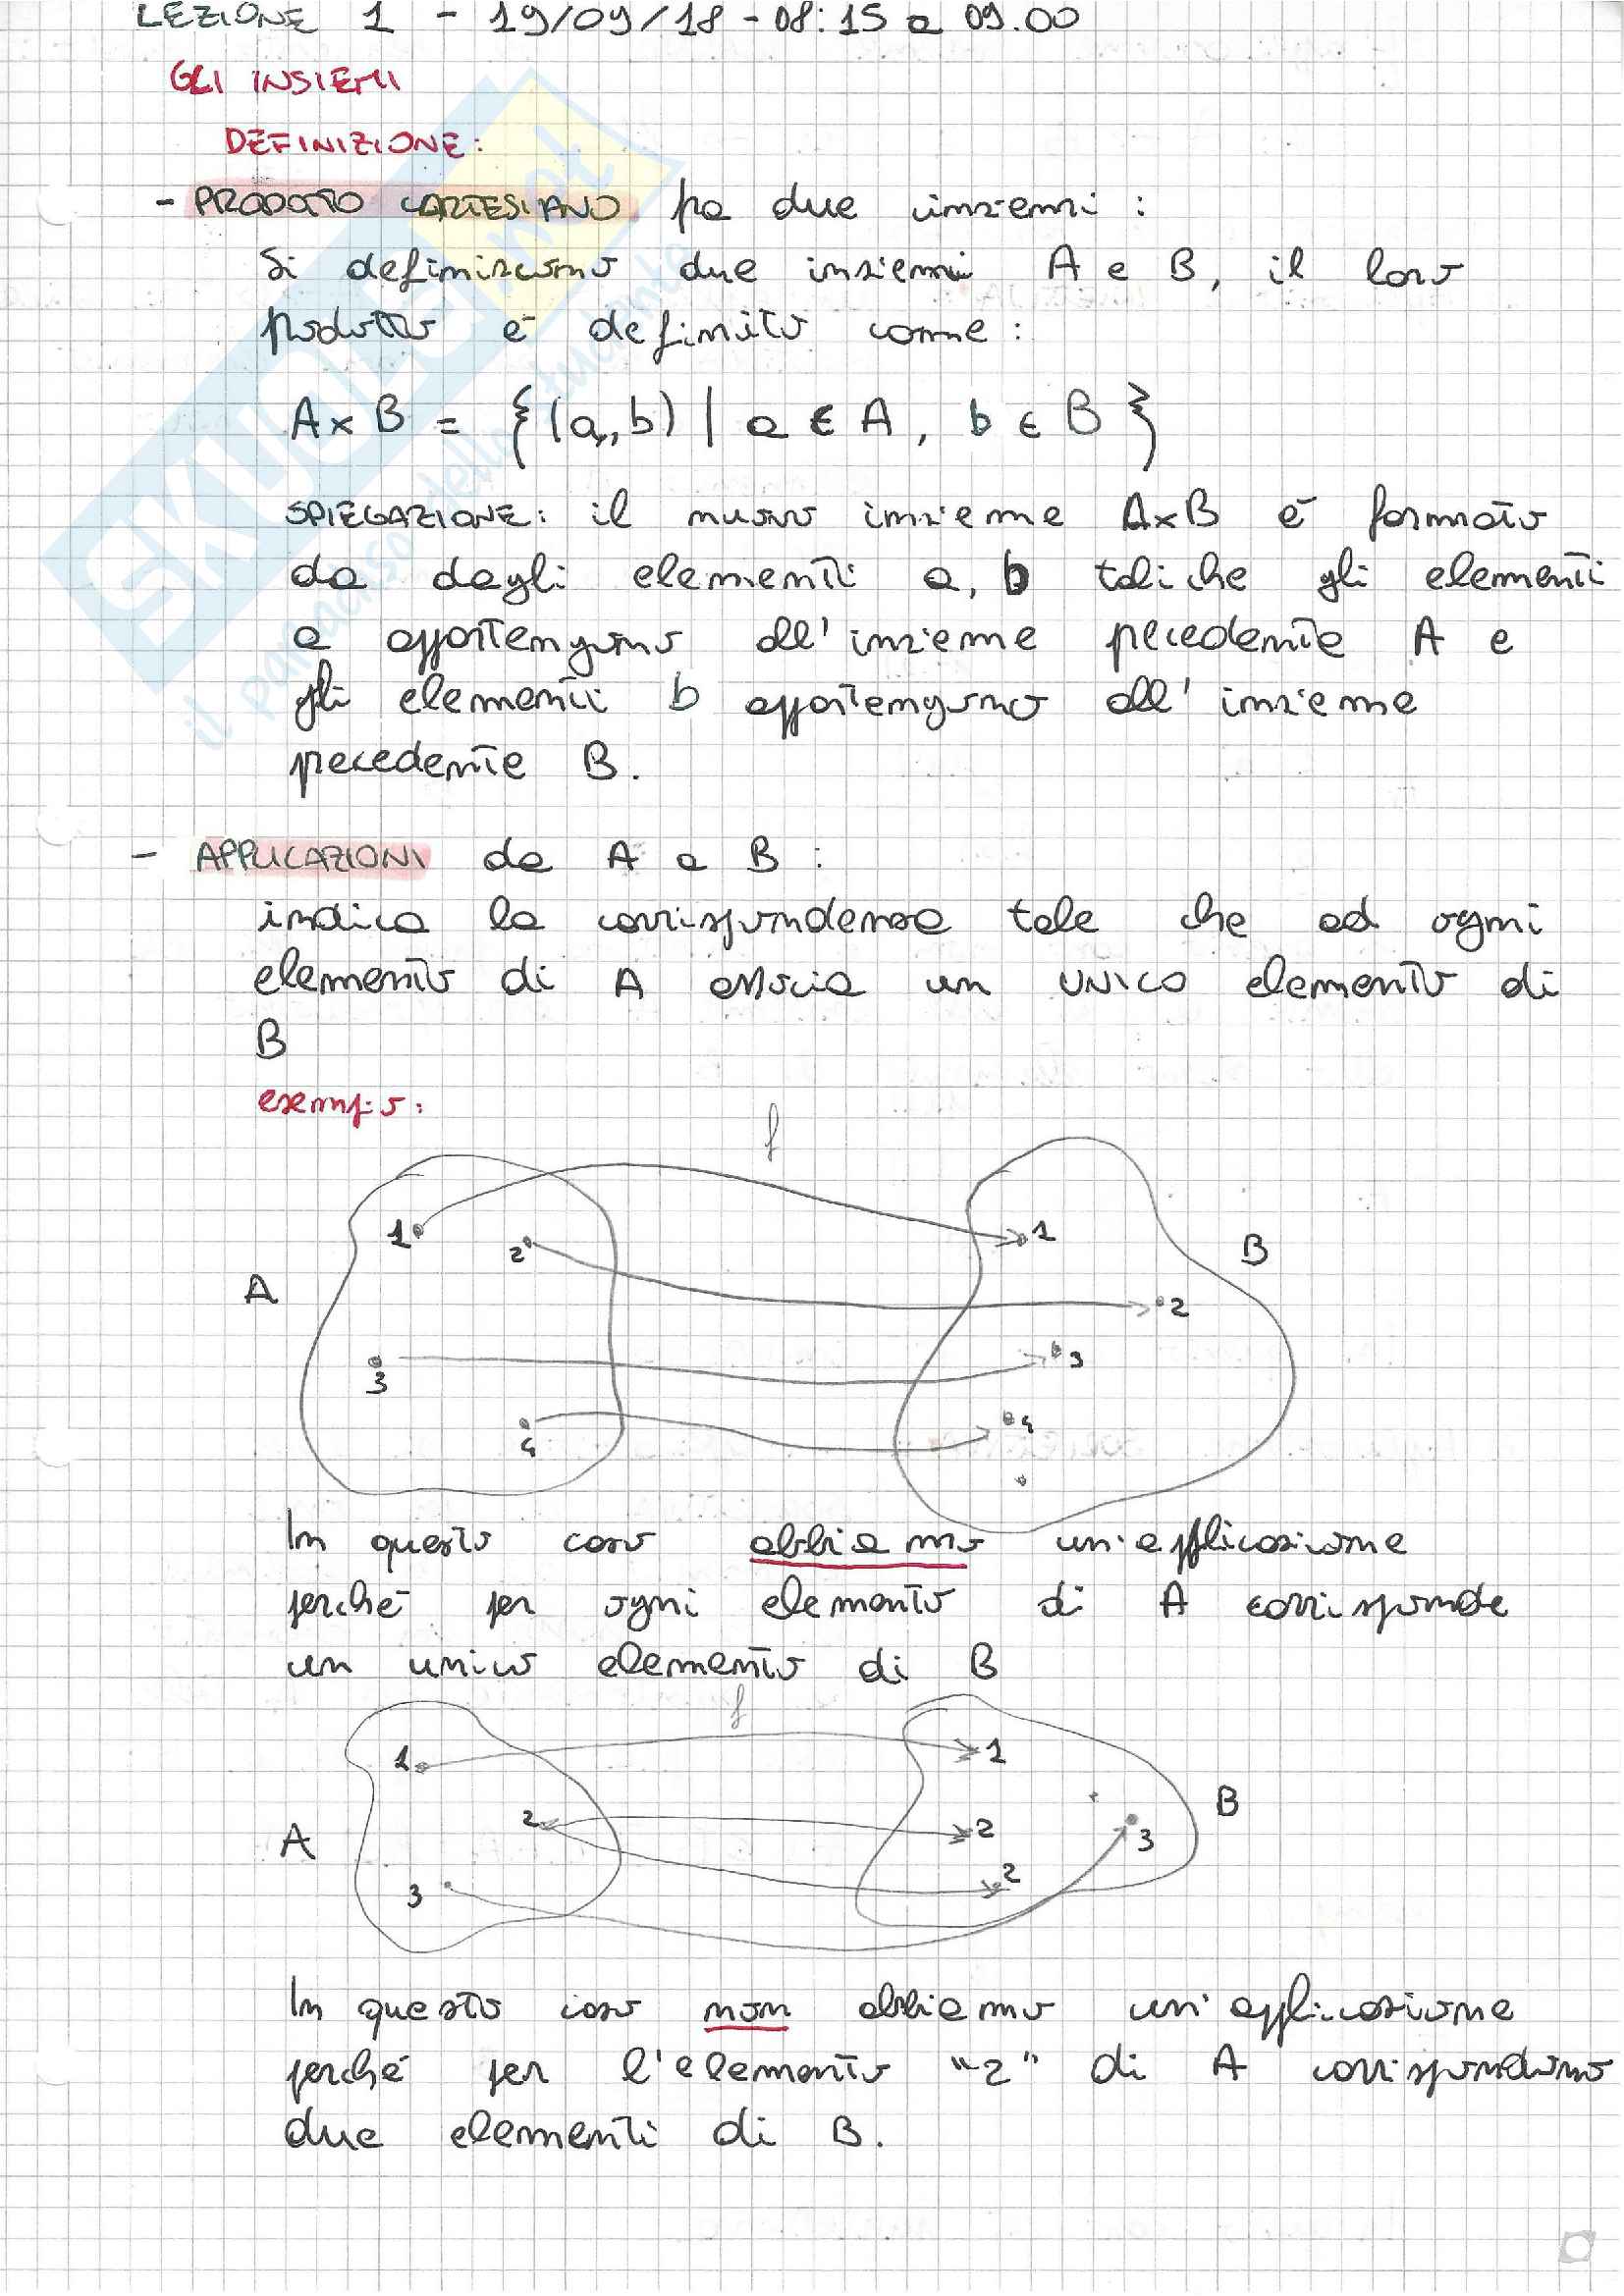 LEZIONE 1 - 19/09/18 - 08:15 a 09.00
GLI INSIEMI
DEFINIZIONE:
- PRODOTTO CARTESIANO fra due insiemi :
Si definiscono due insiemi A e B, il loro
prodotto è definito come :
A x B = {(a,b) | a ∈ A, b ∈ B}
SPIEGAZIONE: il nuovo insieme AxB è formato
da dagli elementi a, b tali che gli elementi
a appartengono all'insieme precedente A e
gli elementi b appartengono all'insieme
precedente B.
- APPLICAZIONI da A a B :
indica la corrispondenza tale che ad ogni
elemento di A associa un UNICO elemento di
B
esempio:
f
1 2 3 4
A
1 2 3 4
B
In questo caso abbiamo un'applicazione
perché per ogni elemento di A corrisponde
un unico elemento di B
f
1 2 3
A
1 2 2 3
B
In questo caso non abbiamo un'applicazione
perché per l'elemento "2" di A corrispondono
due elementi di B.
SKUOLA.net
il paradiso dello studente